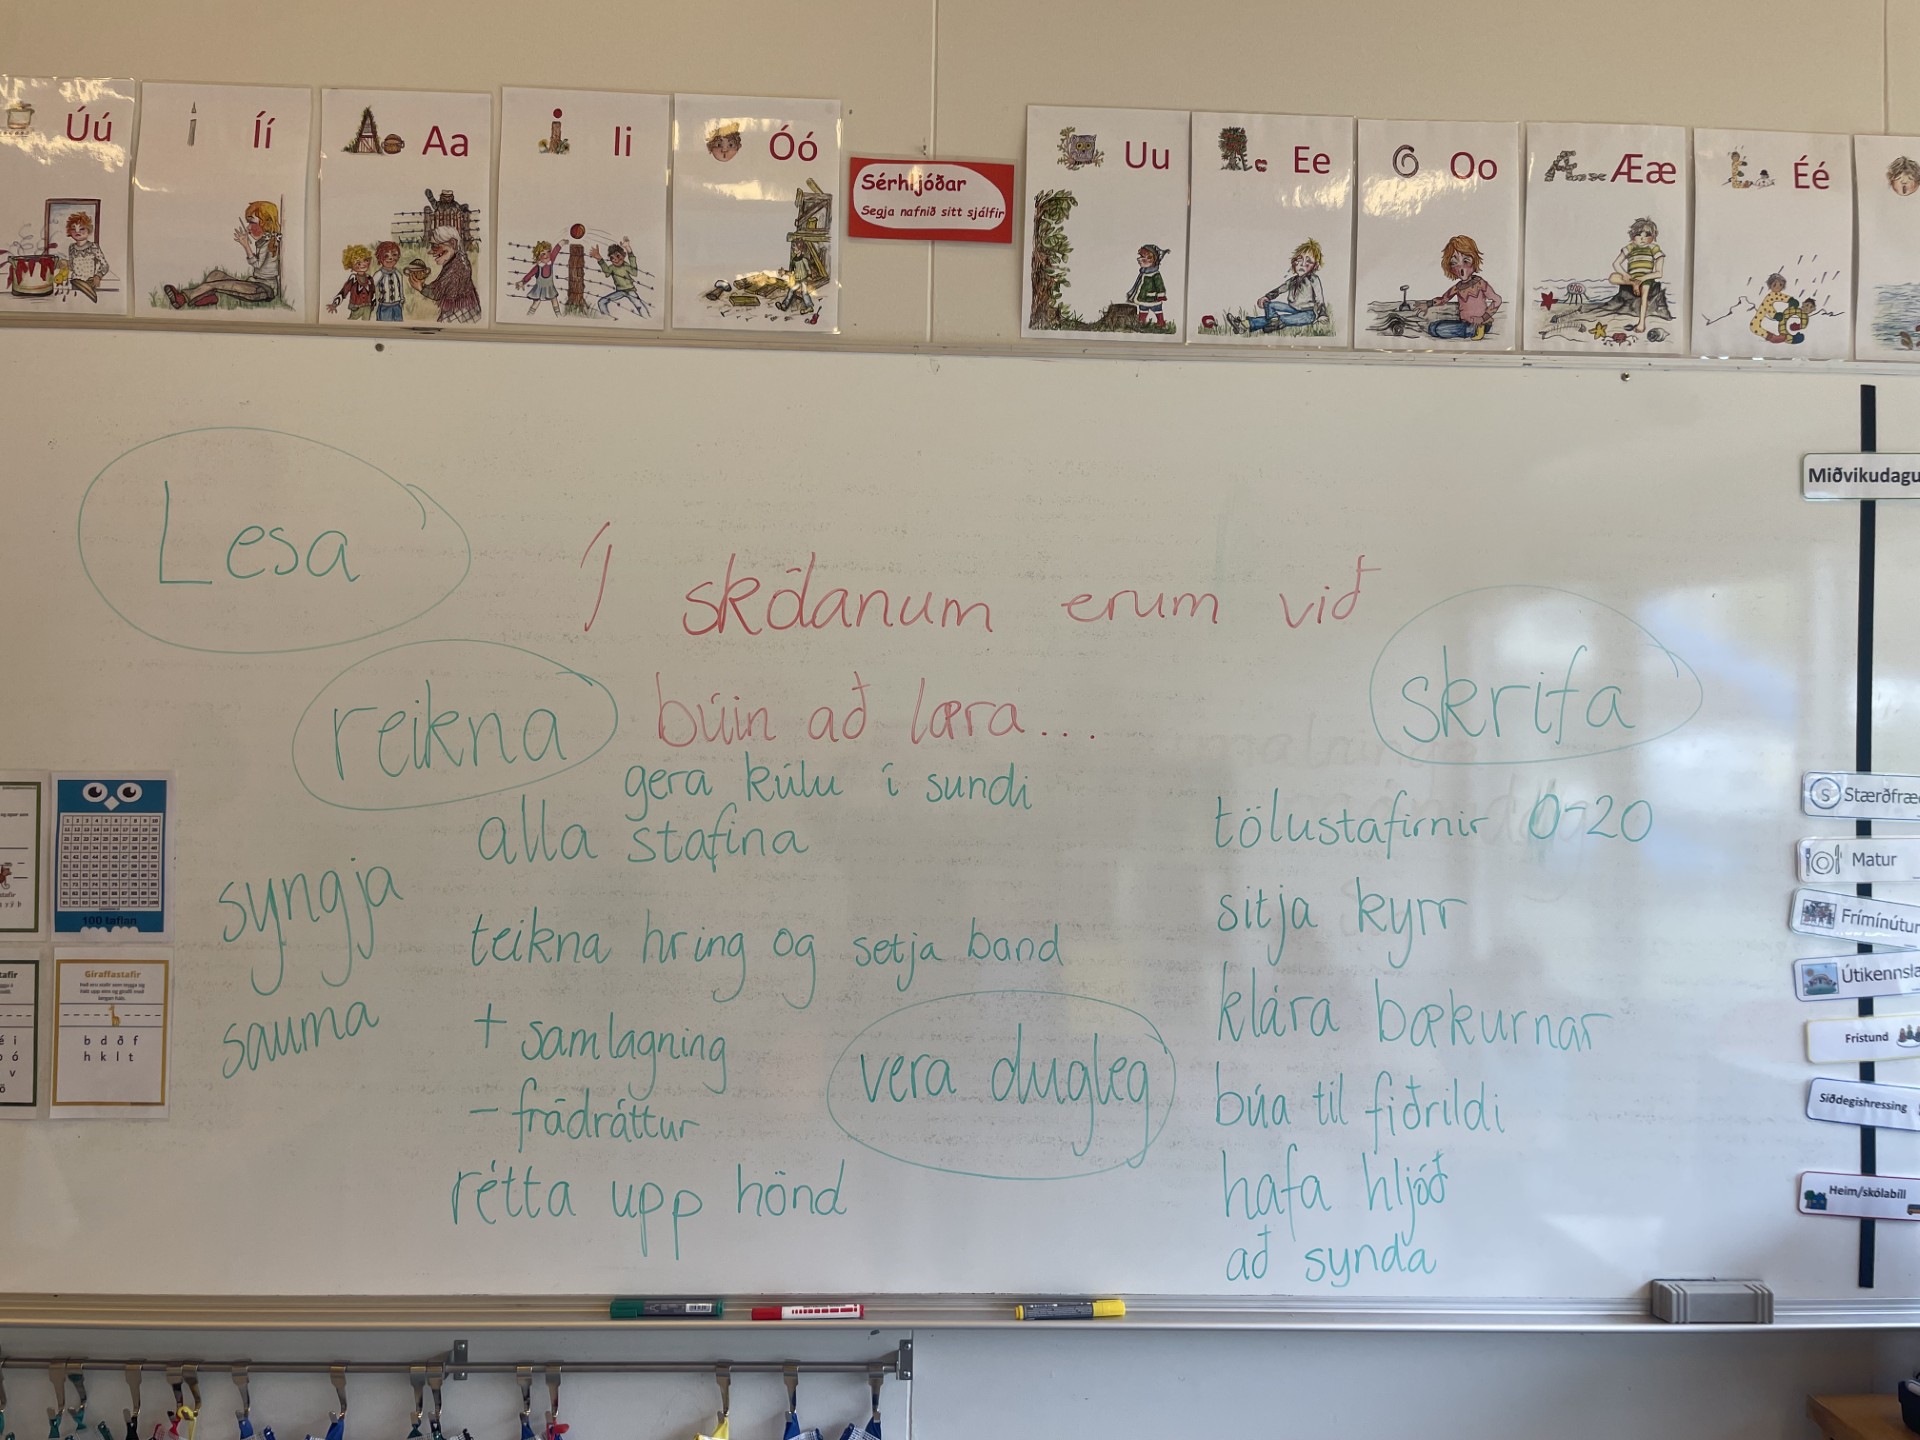 Úú
Íí
Aa
Ii
Óó
Sérhljóðar
Segja nafnið sitt sjálfir
Uu
Ee
Oo
Ææ
Éé
Lesa
Í skólanum erum við
búin að læra...
reikna
skrifa
gera kúlu í sundi
alla stafina
syngja
sauma
teikna hring og setja band
+ samlagning
- frádráttur
rétta upp hönd
vera dugleg
tölustafirnir 0-20
sitja kyrr
klára bækurnar
búa til fiðrildi
hafa hljóð
að synda
100 taflan
Giraffastafir
b d ð f
h k l t
Miðvikudagu
Stærðfræ
Matur
Frímínútur
Útikennsla
Fristund
Síðdegishressing
Heim/skólabíll